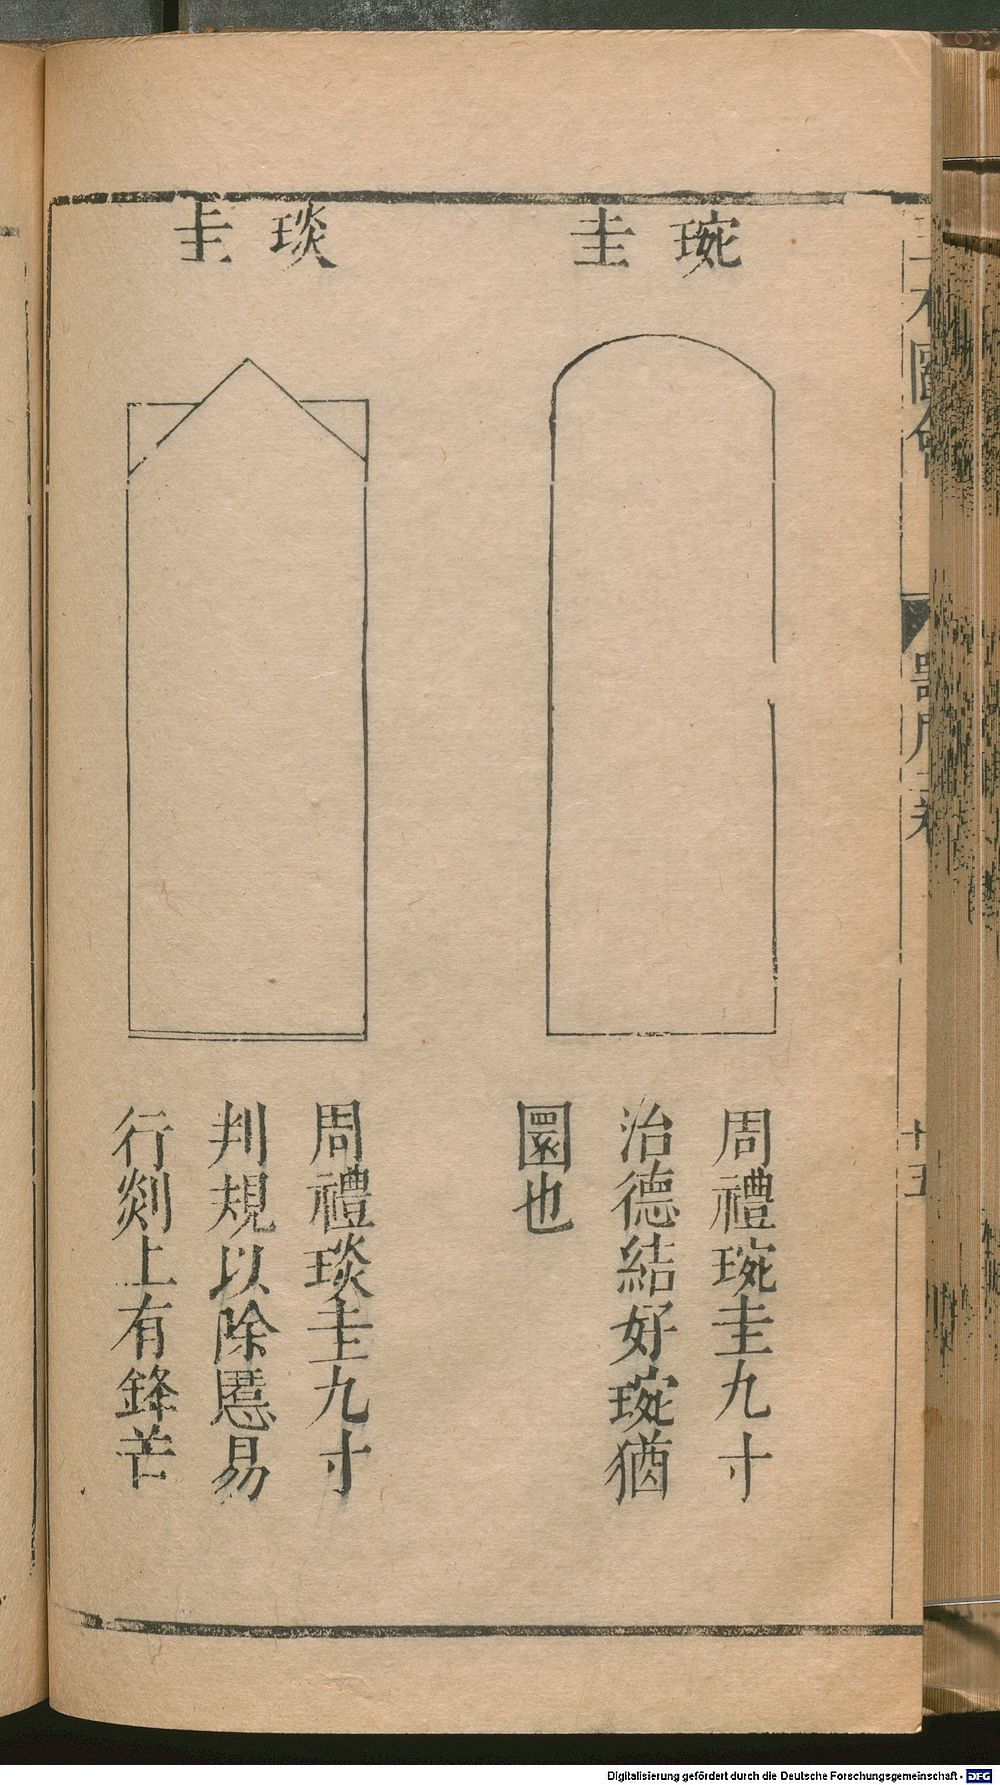 琬圭
周禮琬圭九寸
治德結好琬猶
圜也
琰圭
周禮琰圭九寸
判規以除慝易
行剡上有鋒芒
圖會
十五
Digitalisierung gefördert durch die Deutsche Forschungsgemeinschaft - DFG